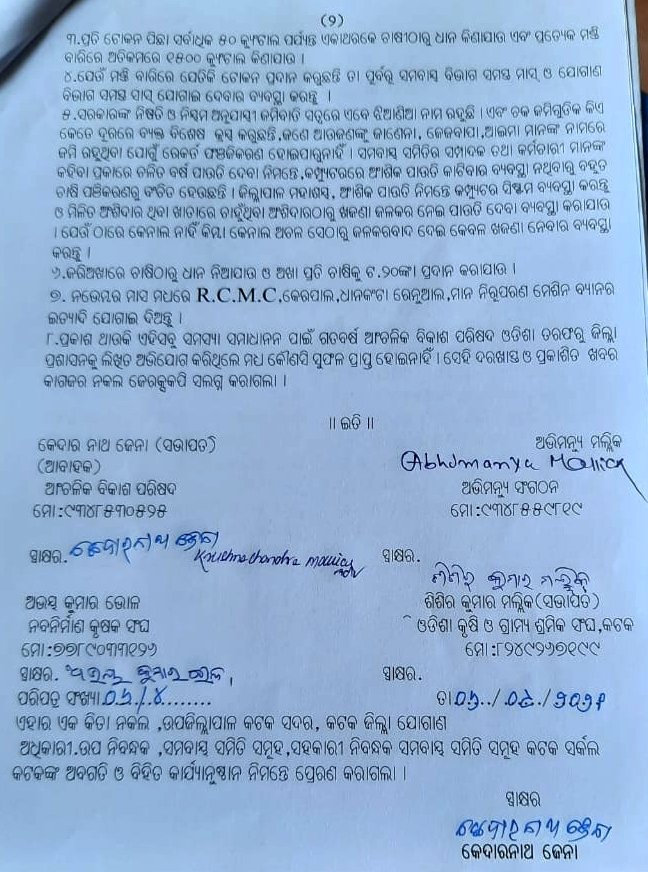 (୨)
୩.ପ୍ରତି ଟୋକନ ପିଛା ସର୍ବାଧିକ ୫୦ କ୍ୱିଣ୍ଟାଲ ପର୍ଯ୍ୟନ୍ତ ଏକାଥରକେ ଚାଷୀଠାରୁ ଧାନ କିଣାଯାଉ ଏବଂ ପ୍ରତ୍ୟେକ ମଣ୍ଡି
ବାରିରେ ଅତିକମରେ ୧୫୦୦ କ୍ୱିଣ୍ଟାଲ କିଣାଯାଉ ।
୪.ଯେଉଁ ମଣ୍ଡି ବାରିରେ ଯେତିକି ଟୋକନ ପ୍ରଦାନ କରୁଛନ୍ତି ତା ପୂର୍ବରୁ ସମବାୟ ବିଭାଗ ସମସ୍ତ ମାସ୍ ଓ ଯୋଗାଣ
ବିଭାଗ ସମସ୍ତ ସାସ୍ ଯୋଗାଇ ଦେବାର ବ୍ୟବସ୍ଥା କରନ୍ତୁ ।
୫.ସରକାରଙ୍କ ନିଷ୍ପତି ଓ ନିୟମ ଅନୁଯାୟୀ ଜମିବାଡି ସତ୍ୱରେ ଏବେ ଝିଆଣିଆ ନାମ ରହୁଛି । ଏବଂ ଚକ ଜମିଗୁଡିକ କିଏ
କେତେ ଦୂରରେ ବ୍ୟକ୍ତି ବିଶେଷ କ୍ରୟ କରୁଛନ୍ତି,ଜଣେ ଆରଜଣଙ୍କୁ ଜାଣେନା, ଜେଜବାପା,ଆଇମା ମାନଙ୍କ ନାମରେ
ଜମି ରହୁଥିବା ଯୋଗୁଁ ରେକର୍ଡ ପଞ୍ଜିକରଣ ହୋଇପାରୁନାହିଁ । ସମବାୟ ସମିତିର ସମ୍ପାଦକ ତଥା କର୍ମଚାରୀ ମାନଙ୍କ
କହିବା ପ୍ରକାରେ ଚଳିତ ବର୍ଷ ପାଉତି ଦେବା ନିମନ୍ତେ,କମ୍ପ୍ୟୁଟରରେ ଆଂଶିକ ପାଉତି କାଟିବାର ବ୍ୟବସ୍ଥା ନଥିବାରୁ ବହୁତ
ଚାଷି ପଞ୍ଜିକରଣରୁ ବଂଚିତ ହେଉଛନ୍ତି । ଜିଲ୍ଲାପାଳ ମହାଶୟ, ଆଂଶିକ ପାଉତି ନିମନ୍ତେ କମ୍ପ୍ୟୁଟର ସିଷ୍ଟମ ବ୍ୟବସ୍ଥା କରନ୍ତୁ
ଓ ମିଳିତ ଅଂଶିଦାର ଥିବା ଖାତାରେ ଚାହୁଁଥିବା ଅଂଶିଦାରଠାରୁ ଖଜଣା ଜଳକର ନେଇ ପାଉତି ଦେବା ବ୍ୟବସ୍ଥା କରାଯାଉ
। ଯେଉଁ ଠାରେ କେନାଲ ନାହିଁ କିମ୍ବା କେନାଲ ଅଚଳ ସେଠାରୁ ଜଳକରବାଦ ଦେଇ କେବଳ ଖଜଣା ନେବାର ବ୍ୟବସ୍ଥା
କରନ୍ତୁ ।
୬.ଜରିଅଖାରେ ଚାଷିଠାରୁ ଧାନ ନିଆଯାଉ ଓ ଅଖା ପ୍ରତି ଚାଷିକୁ ଟ.୨୦ଙ୍କା ପ୍ରଦାନ କରାଯାଉ ।
୭. ନଭେମ୍ବର ମାସ ମଧ୍ୟରେ R.C.M.C,କେରପାଲ,ଧାନକଂଟା ରେନୁଆଲ,ମାନ ନିରୂପରଣ ମେଶିନ ବ୍ୟାନର
ଇତ୍ୟାଦି ଯୋଗାଇ ଦିଅନ୍ତୁ ।
୮.ପ୍ରକାଶ ଥାଉକି ଏହିସବୁ ସମସ୍ୟା ସମାଧାନନ ପାଇଁ ଗତବର୍ଷ ଆଂଚଳିକ ବିକାଶ ପରିଷଦ ଓଡିଶା ତରଫରୁ ଜିଲ୍ଲା
ପ୍ରଶାସନକୁ ଲିଖିତ ଅଭିଯୋଗ କରିଥିଲେ ମଧ୍ୟ କୌଣସି ସୁଫଳ ପ୍ରାପ୍ତ ହୋଇନାହିଁ । ସେହି ଦରଖାସ୍ତ ଓ ପ୍ରକାଶିତ ଖବର
କାଗଜର ନକଲ ଜେରକ୍ସକପି ସଲଗ୍ନ କରାଗଲା ।
।। ଇତି ।।
କେଦାର ନାଥ ଜେନା (ସଭାପତି)
(ଆବାହକ)
ଆଂଚଳିକ ବିକାଶ ପରିଷଦ
ମୋ:୯୩୪୮୫୩୦୫୨୫
ଅଭିମନ୍ୟୁ ମଲ୍ଲିକ
Abhimanya Mallick
ଅଭିମନ୍ୟୁ ସଂଗଠନ
ମୋ:୯୩୪୮୫୫୯୮୧୯
ସ୍ୱାକ୍ଷର. କେଦାରନାଥ ଜେନା
ସ୍ୱାକ୍ଷର.
ଶିଶିର କୁମାର ମଲ୍ଲିକ
ଅଭୟ କୁମାର ଭୋଳ
ନବନିର୍ମାଣ କୃଷକ ସଂଘ
ମୋ:୭୭୮୯୦୩୩୧୨୬
ସ୍ୱାକ୍ଷର. ଅଭୟ କୁମାର ଭୋଳ
ଶିଶିର କୁମାର ମଲ୍ଲିକ(ସଭାପତି)
ଓଡିଶା କୃଷି ଓ ଗ୍ରାମ୍ୟ ଶ୍ରମିକ ସଂଘ,କଟକ
ମୋ:୮୨୪୯୨୬୭୧୯୯
ସ୍ୱାକ୍ଷର.
ପରିପତ୍ର ସଂଖ୍ୟା
ତା
ଏହାର ଏକ କିତା ନକଲ ,ଉପଜିଲ୍ଲାପାଳ କଟକ ସଦର, କଟକ ଜିଲ୍ଲା ଯୋଗାଣ
ଅଧିକାରୀ.ଉପ ନିବନ୍ଧକ ,ସମବାୟ ସମିତି ସମୂହ,ସହକାରୀ ନିବନ୍ଧକ ସମବାୟ ସମିତି ସମୂହ କଟକ ସର୍କଲ
କଟକଙ୍କ ଅବଗତି ଓ ବିହିତ କାର୍ଯ୍ୟାନୁଷ୍ଠାନ ନିମନ୍ତେ ପ୍ରେରଣ କରାଗଲା ।
ସ୍ୱାକ୍ଷର
କେଦାରନାଥ ଜେନା
କେଦାରନାଥ ଜେନା